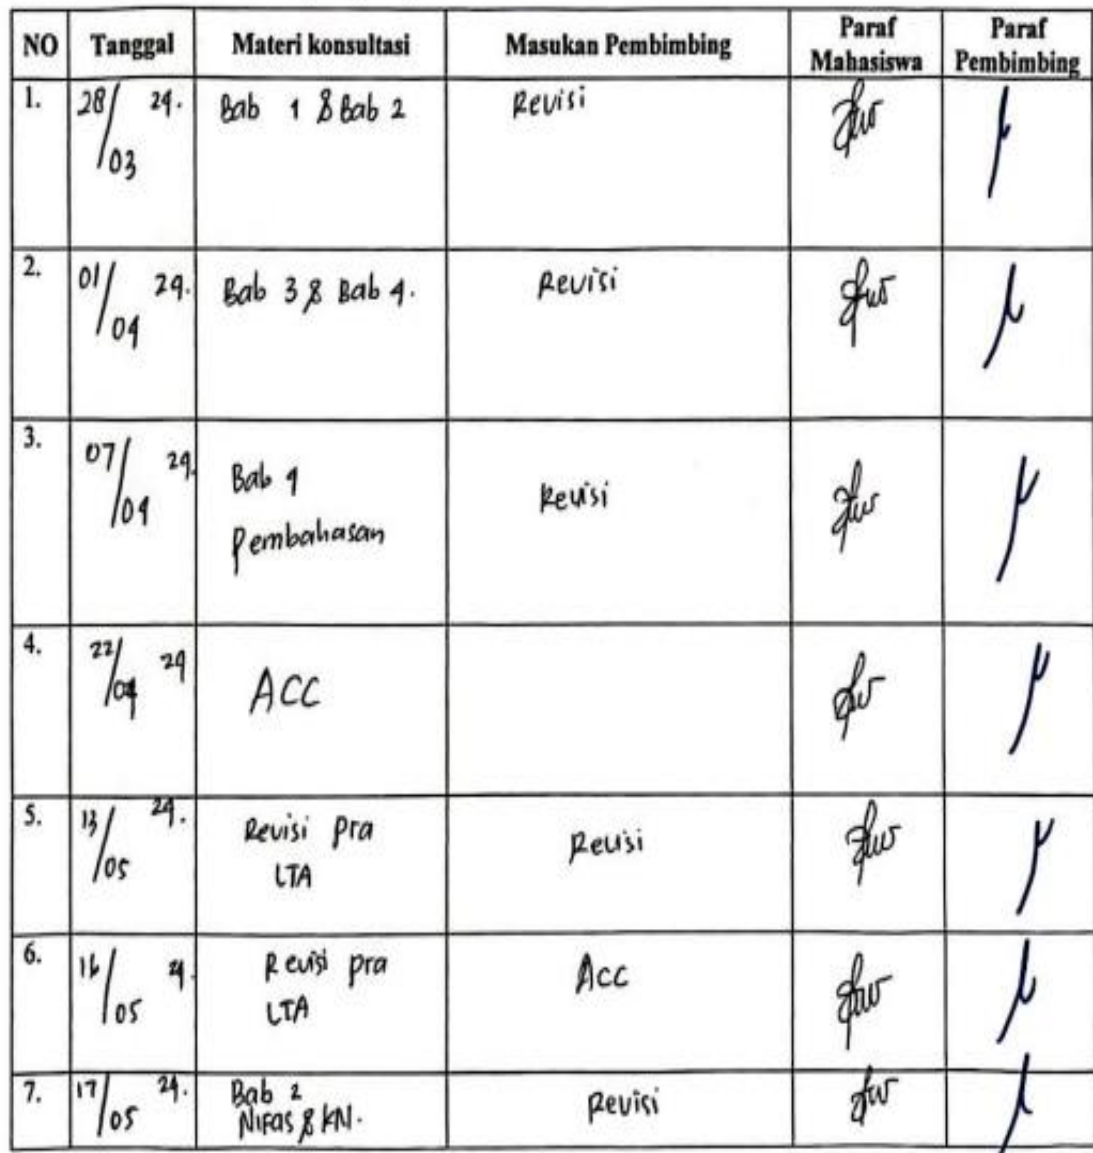 NO Tanggal Materi konsultasi Masukan Pembimbing Paraf Mahasiswa Paraf Pembimbing
1. 28/03 24. Bab 1 & Bab 2 Revisi
2. 01/04 24. Bab 3 & Bab 4. Revisi
3. 07/04 24. Bab 4 Revisi
Pembahasan
4. 22/04 24 ACC
5. 13/05 24. Revisi pra Revisi
LTA
6. 16/05 24. Revisi pra ACC
LTA
7. 17/05 24. Bab 2 Revisi
Nifas & KN.